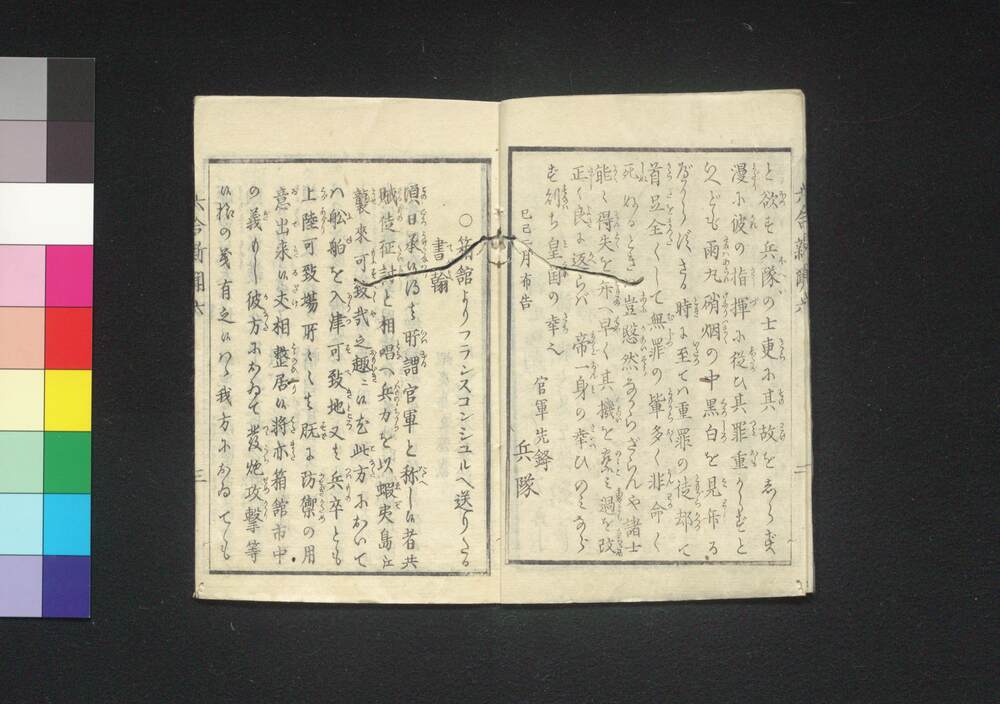 と欲も兵隊の士更に其故をしらず
漫に彼の指揮に従ひ其罪重からずと
いへども雨丸硝烟の中黒白を見弁る
ながらず
さる時に至てハ重罪の徒却て
首足全くして無罪の輩多く非命に
死するときハ豈愍然ならざらんや諸士
能く得失を弁へ早く其機を察し過を改
正しきに返らバ
帝一身の幸ひのみならず
則ち皇国の幸也
己巳二月布告
官軍先鋒
兵隊
六合新聞六
○箱館よりフランスコンシュルへ送りたる
書翰
頃日承り候得は所謂官軍と称し候者共
賊徒征討と相唱へ兵力を以蝦夷島江
襲来可致哉之趣に候
此方において
ハ船舶を入津可致地又は兵卒とも
上陸可致場所々々は既に防禦の用
意出来候夫々相整居候将亦箱館市中
の義もし彼方において発炮攻撃等
候
の義有之候ハヽ我方においても
六合新聞六
三